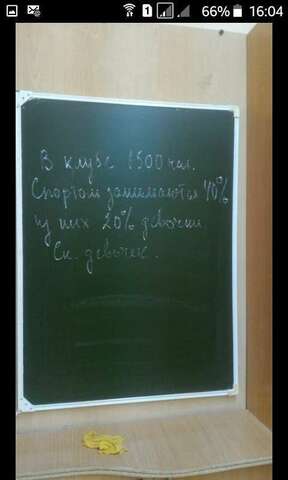 1 66% 16:04
В клубе 1500 чел.
Спортом занимаются 40%
из них 20% девочки
Ск. девочек.